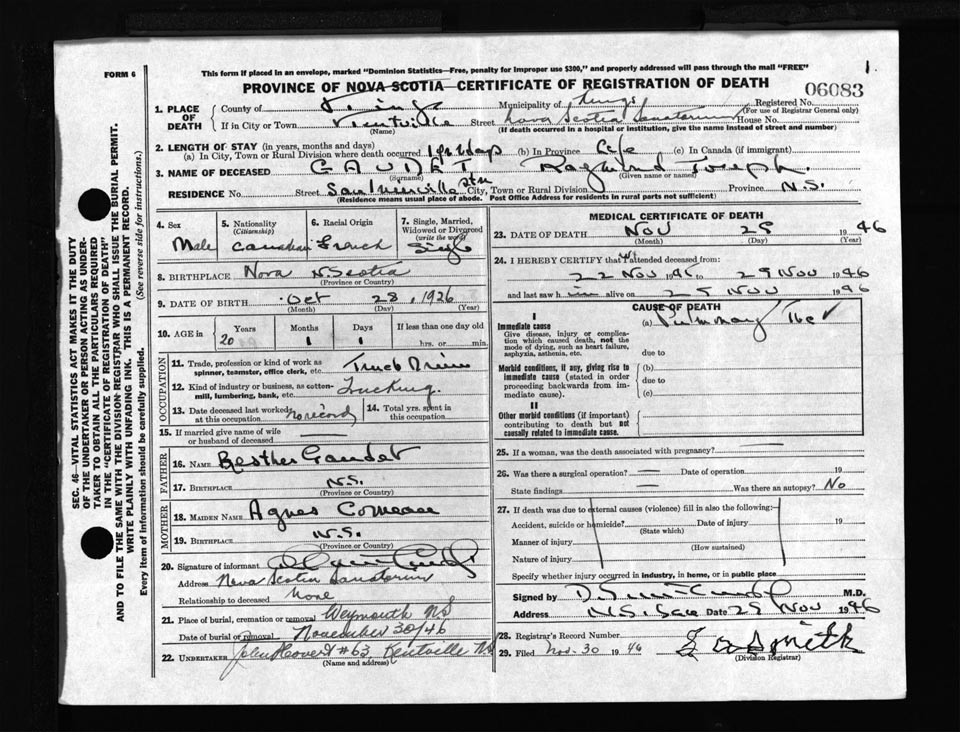 FORM 6
This form if placed in an envelope, marked "Dominion Statistics—Free, penalty for improper use $300," and properly addressed will pass through the mail "FREE"
1
PROVINCE OF NOVA SCOTIA—CERTIFICATE OF REGISTRATION OF DEATH
06083
1. PLACE OF DEATH
County of Kings Municipality of Kings Registered No.
(For use of Registrar General only)
If in City or Town Kentville Street Nova Scotia Sanatorium House No.
(Name) (If death occurred in a hospital or institution, give the name instead of street and number)
2. LENGTH OF STAY (in years, months and days)
(a) In City, Town or Rural Division where death occurred days (b) In Province Life (c) In Canada (if immigrant)
3. NAME OF DECEASED GAUDET Raymond Joseph.
(Surname) (Given name or names)
RESIDENCE No. Street Saulnierville Stn City, Town or Rural Division Province N.S.
(Residence means usual place of abode. Post Office Address for residents in rural parts not sufficient)
4. Sex
Male
5. Nationality
(Citizenship)
Canadian
6. Racial Origin
French
7. Single, Married, Widowed or Divorced
(write the word)
Single
8. BIRTHPLACE Nova Scotia
(Province or Country)
9. DATE OF BIRTH Oct 28, 1926
(Month) (Day) (Year)
10. AGE in
Years Months Days If less than one day old
20 1 1 hrs. or min.
OCCUPATION
11. Trade, profession or kind of work as spinner, teamster, office clerk, etc. Truck Driver
12. Kind of industry or business, as cotton-mill, lumbering, bank, etc. Trucking.
13. Date deceased last worked at this occupation no record
14. Total yrs. spent in this occupation
15. If married give name of wife or husband of deceased
FATHER
16. NAME Gaudet
17. BIRTHPLACE N.S.
(Province or Country)
MOTHER
18. MAIDEN NAME Agnes Comeau
19. BIRTHPLACE N.S.
(Province or Country)
20. Signature of informant
Address Nova Scotia Sanatorium
Relationship to deceased None
21. Place of burial, cremation or removal Weymouth N.S
Date of burial or removal November 30/46
22. UNDERTAKER #63, Kentville N.S
(Name and address)
MEDICAL CERTIFICATE OF DEATH
23. DATE OF DEATH Nov 29 1946
(Month) (Day) (Year)
24. I HEREBY CERTIFY that I attended deceased from:
22 Nov to 29 Nov 1946
and last saw h alive on 29 Nov 1946
CAUSE OF DEATH
I
Immediate cause
Give disease, injury or complication which caused death, not the mode of dying, such as heart failure, asphyxia, asthenia, etc.
(a) Pulmonary Tbc
due to
Morbid conditions, if any, giving rise to immediate cause (stated in order proceeding backwards from immediate cause).
(b)
due to
(c)
II
Other morbid conditions (if important) contributing to death but not causally related to immediate cause.
25. If a woman, was the death associated with pregnancy?
26. Was there a surgical operation? — Date of operation 19
State findings — Was there an autopsy? No
27. If death was due to external causes (violence) fill in also the following:—
Accident, suicide or homicide? Date of injury 19
(State which)
Manner of injury
(How sustained)
Nature of injury
Specify whether injury occurred in industry, in home, or in public place
Signed by M.D.
Address N.S. San Date 29 Nov 1946
28. Registrar's Record Number
29. Filed Nov. 30 1946 Smith
(Division Registrar)
SEC. 46—VITAL STATISTICS ACT MAKES IT THE DUTY
OF THE UNDERTAKER OR PERSON ACTING AS UNDER-
TAKER TO OBTAIN ALL THE PARTICULARS REQUIRED
IN THE "CERTIFICATE OF REGISTRATION OF DEATH"
AND TO FILE THE SAME WITH THE DIVISION REGISTRAR WHO SHALL ISSUE THE BURIAL PERMIT.
WRITE PLAINLY WITH UNFADING INK. THIS IS A PERMANENT RECORD.
Every item of Information should be carefully supplied. (See reverse side for instructions).